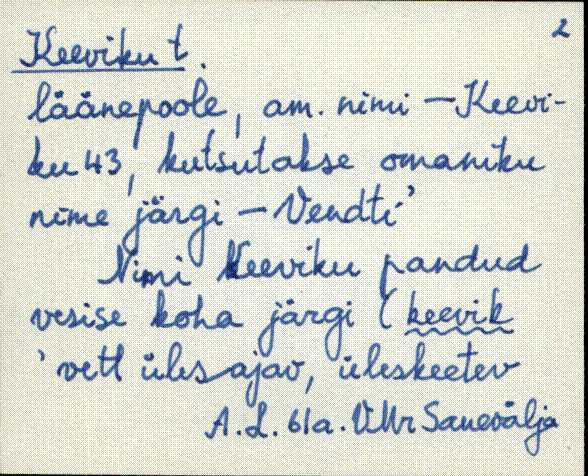 2
Keeviku t.
läänepoole, am. nimi – Keevi-
ku 43, kutsutakse omaniku
nime järgi – Vendti'
Nimi Keeviku pandud
vesise koha järgi (keevik
'vett üles ajav, üleskeetev
A. L. 61a. VMr Sanevälja